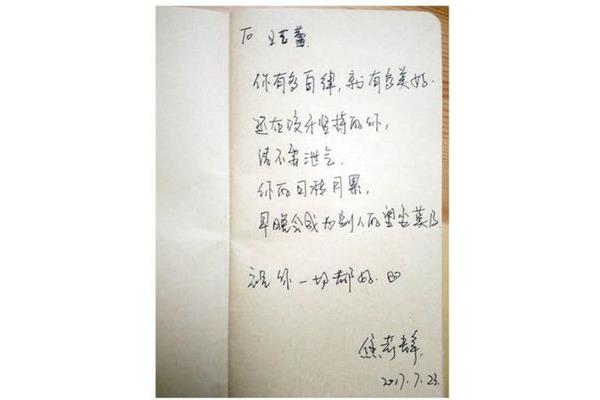 To
你有多自律,就有多美好.
还在咬牙坚持的你,
请不要泄气.
你的日积月累,
早晚会成为别人的望尘莫及.
祝你一切都好.
2017.7.23.